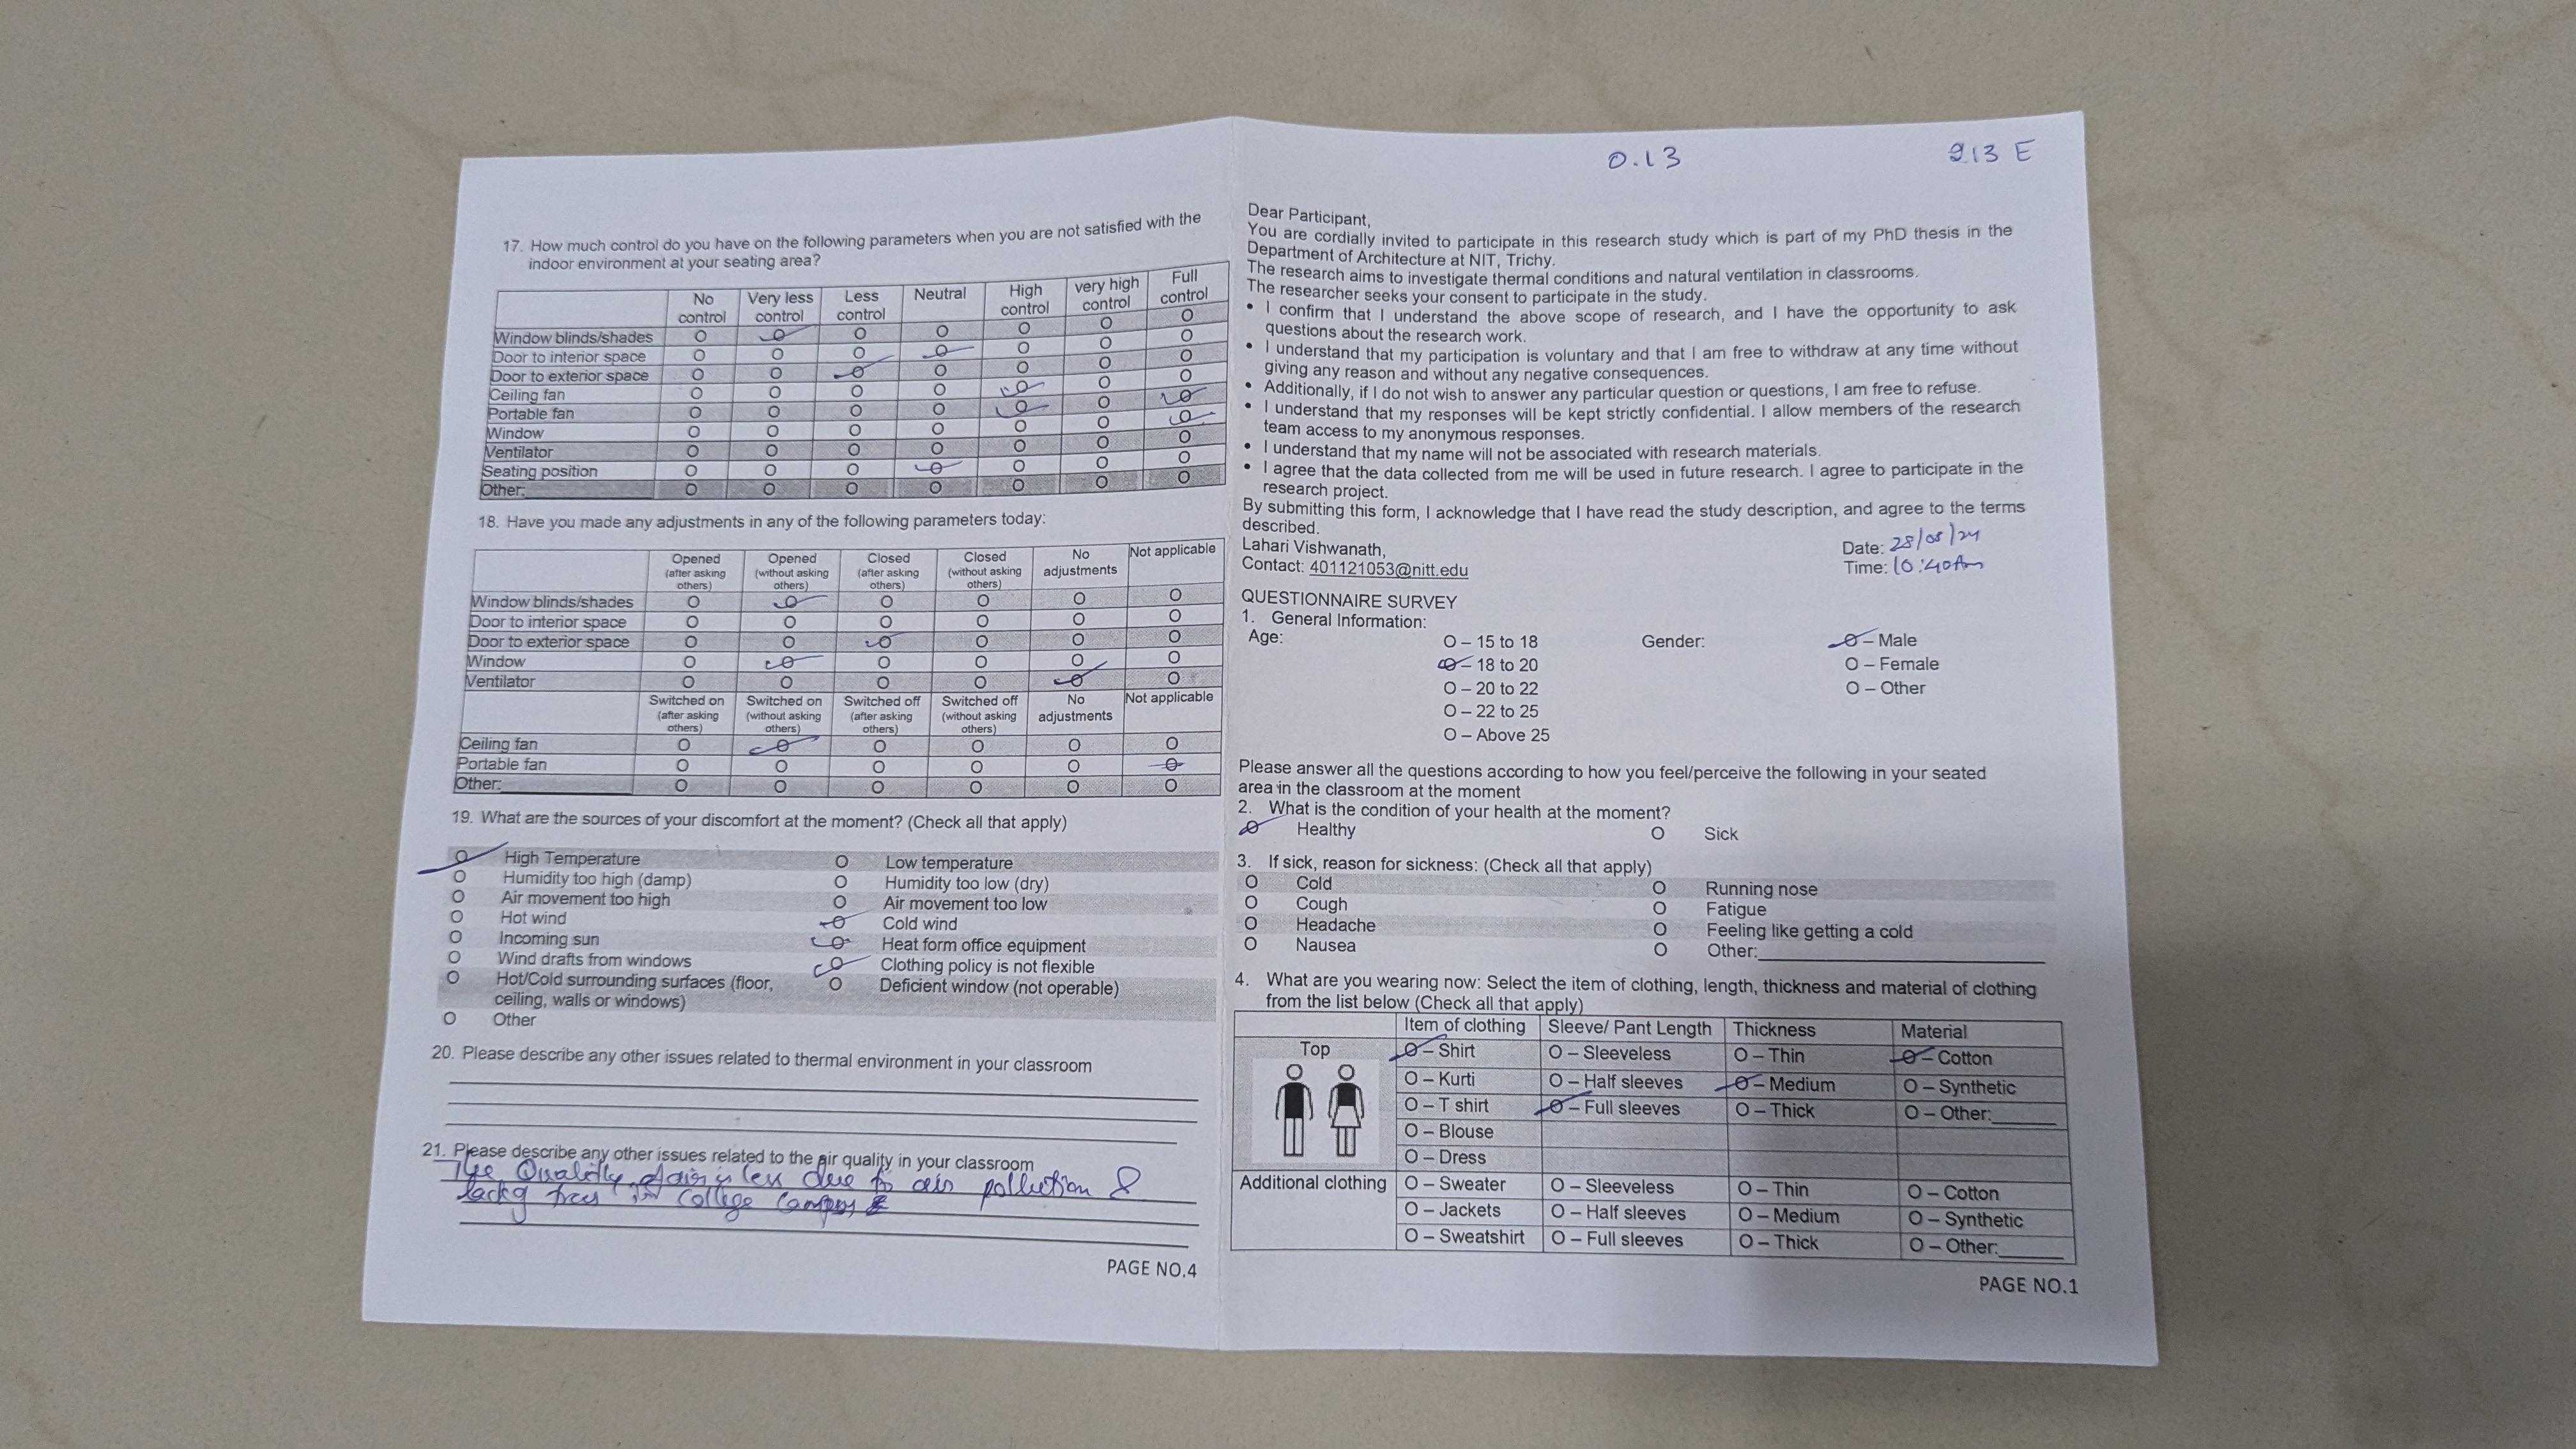 17. How much control do you have on the following parameters when you are not satisfied with the
indoor environment at your seating area?
No control Very less control Less control Neutral High control very high control Full control
Window blinds/shades O O O O O O O
Door to interior space O O O O O O O
Door to exterior space O O O O O O O
Ceiling fan O O O O O O O
Portable fan O O O O O O O
Window O O O O O O O
Ventilator O O O O O O O
Seating position O O O O O O O
Other: O O O O O O O
18. Have you made any adjustments in any of the following parameters today:
Opened (after asking others) Opened (without asking others) Closed (after asking others) Closed (without asking others) No adjustments Not applicable
Window blinds/shades O O O O O O
Door to interior space O O O O O O
Door to exterior space O O O O O O
Window O O O O O O
Ventilator O O O O O O
Switched on (after asking others) Switched on (without asking others) Switched off (after asking others) Switched off (without asking others) No adjustments Not applicable
Ceiling fan O O O O O O
Portable fan O O O O O O
Other: O O O O O O
19. What are the sources of your discomfort at the moment? (Check all that apply)
O High Temperature O Low temperature
O Humidity too high (damp) O Humidity too low (dry)
O Air movement too high O Air movement too low
O Hot wind O Cold wind
O Incoming sun O Heat form office equipment
O Wind drafts from windows O Clothing policy is not flexible
O Hot/Cold surrounding surfaces (floor, O Deficient window (not operable)
ceiling, walls or windows)
O Other
20. Please describe any other issues related to thermal environment in your classroom
21. Please describe any other issues related to the air quality in your classroom
The Quality of air is less due to air pollution &
lack of trees in College Campus
PAGE NO.4
0.13 213 E
Dear Participant,
You are cordially invited to participate in this research study which is part of my PhD thesis in the
Department of Architecture at NIT, Trichy.
The research aims to investigate thermal conditions and natural ventilation in classrooms.
The researcher seeks your consent to participate in the study.
• I confirm that I understand the above scope of research, and I have the opportunity to ask
questions about the research work.
• I understand that my participation is voluntary and that I am free to withdraw at any time without
giving any reason and without any negative consequences.
• Additionally, if I do not wish to answer any particular question or questions, I am free to refuse.
• I understand that my responses will be kept strictly confidential. I allow members of the research
team access to my anonymous responses.
• I understand that my name will not be associated with research materials.
• I agree that the data collected from me will be used in future research. I agree to participate in the
research project.
By submitting this form, I acknowledge that I have read the study description, and agree to the terms
described.
Lahari Vishwanath, Date: 28/08/24
Contact: 401121053@nitt.edu Time: 10:40Am
QUESTIONNAIRE SURVEY
1. General Information:
Age: O – 15 to 18 Gender: O – Male
O – 18 to 20 O – Female
O – 20 to 22 O – Other
O – 22 to 25
O – Above 25
Please answer all the questions according to how you feel/perceive the following in your seated
area in the classroom at the moment
2. What is the condition of your health at the moment?
O Healthy O Sick
3. If sick, reason for sickness: (Check all that apply)
O Cold O Running nose
O Cough O Fatigue
O Headache O Feeling like getting a cold
O Nausea O Other:
4. What are you wearing now: Select the item of clothing, length, thickness and material of clothing
from the list below (Check all that apply)
Item of clothing Sleeve/ Pant Length Thickness Material
Top O – Shirt O – Sleeveless O – Thin O – Cotton
O – Kurti O – Half sleeves O – Medium O – Synthetic
O – T shirt O – Full sleeves O – Thick O – Other:
O – Blouse
O – Dress
Additional clothing O – Sweater O – Sleeveless O – Thin O – Cotton
O – Jackets O – Half sleeves O – Medium O – Synthetic
O – Sweatshirt O – Full sleeves O – Thick O – Other:
PAGE NO.1